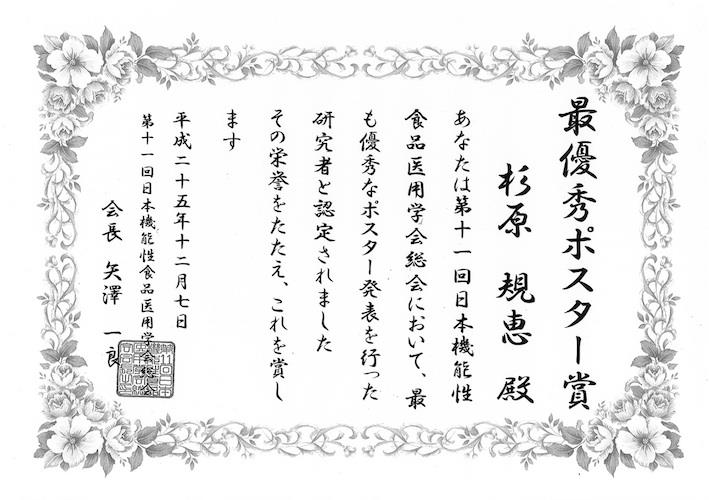 最優秀ポスター賞
杉原 規恵 殿
あなたは第十一回日本機能性
食品医用学会総会において、最
も優秀なポスター発表を行った
研究者と認定されました
その栄誉をたたえ、これを賞し
ます
平成二十五年十二月七日
第十一回日本機能性食品医用学会総会
会長 矢澤 一良